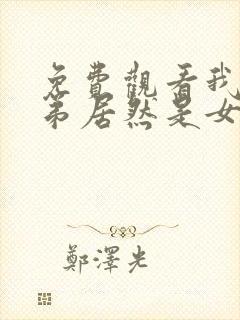 免費觀看我
弟居然是女
鄭澤光